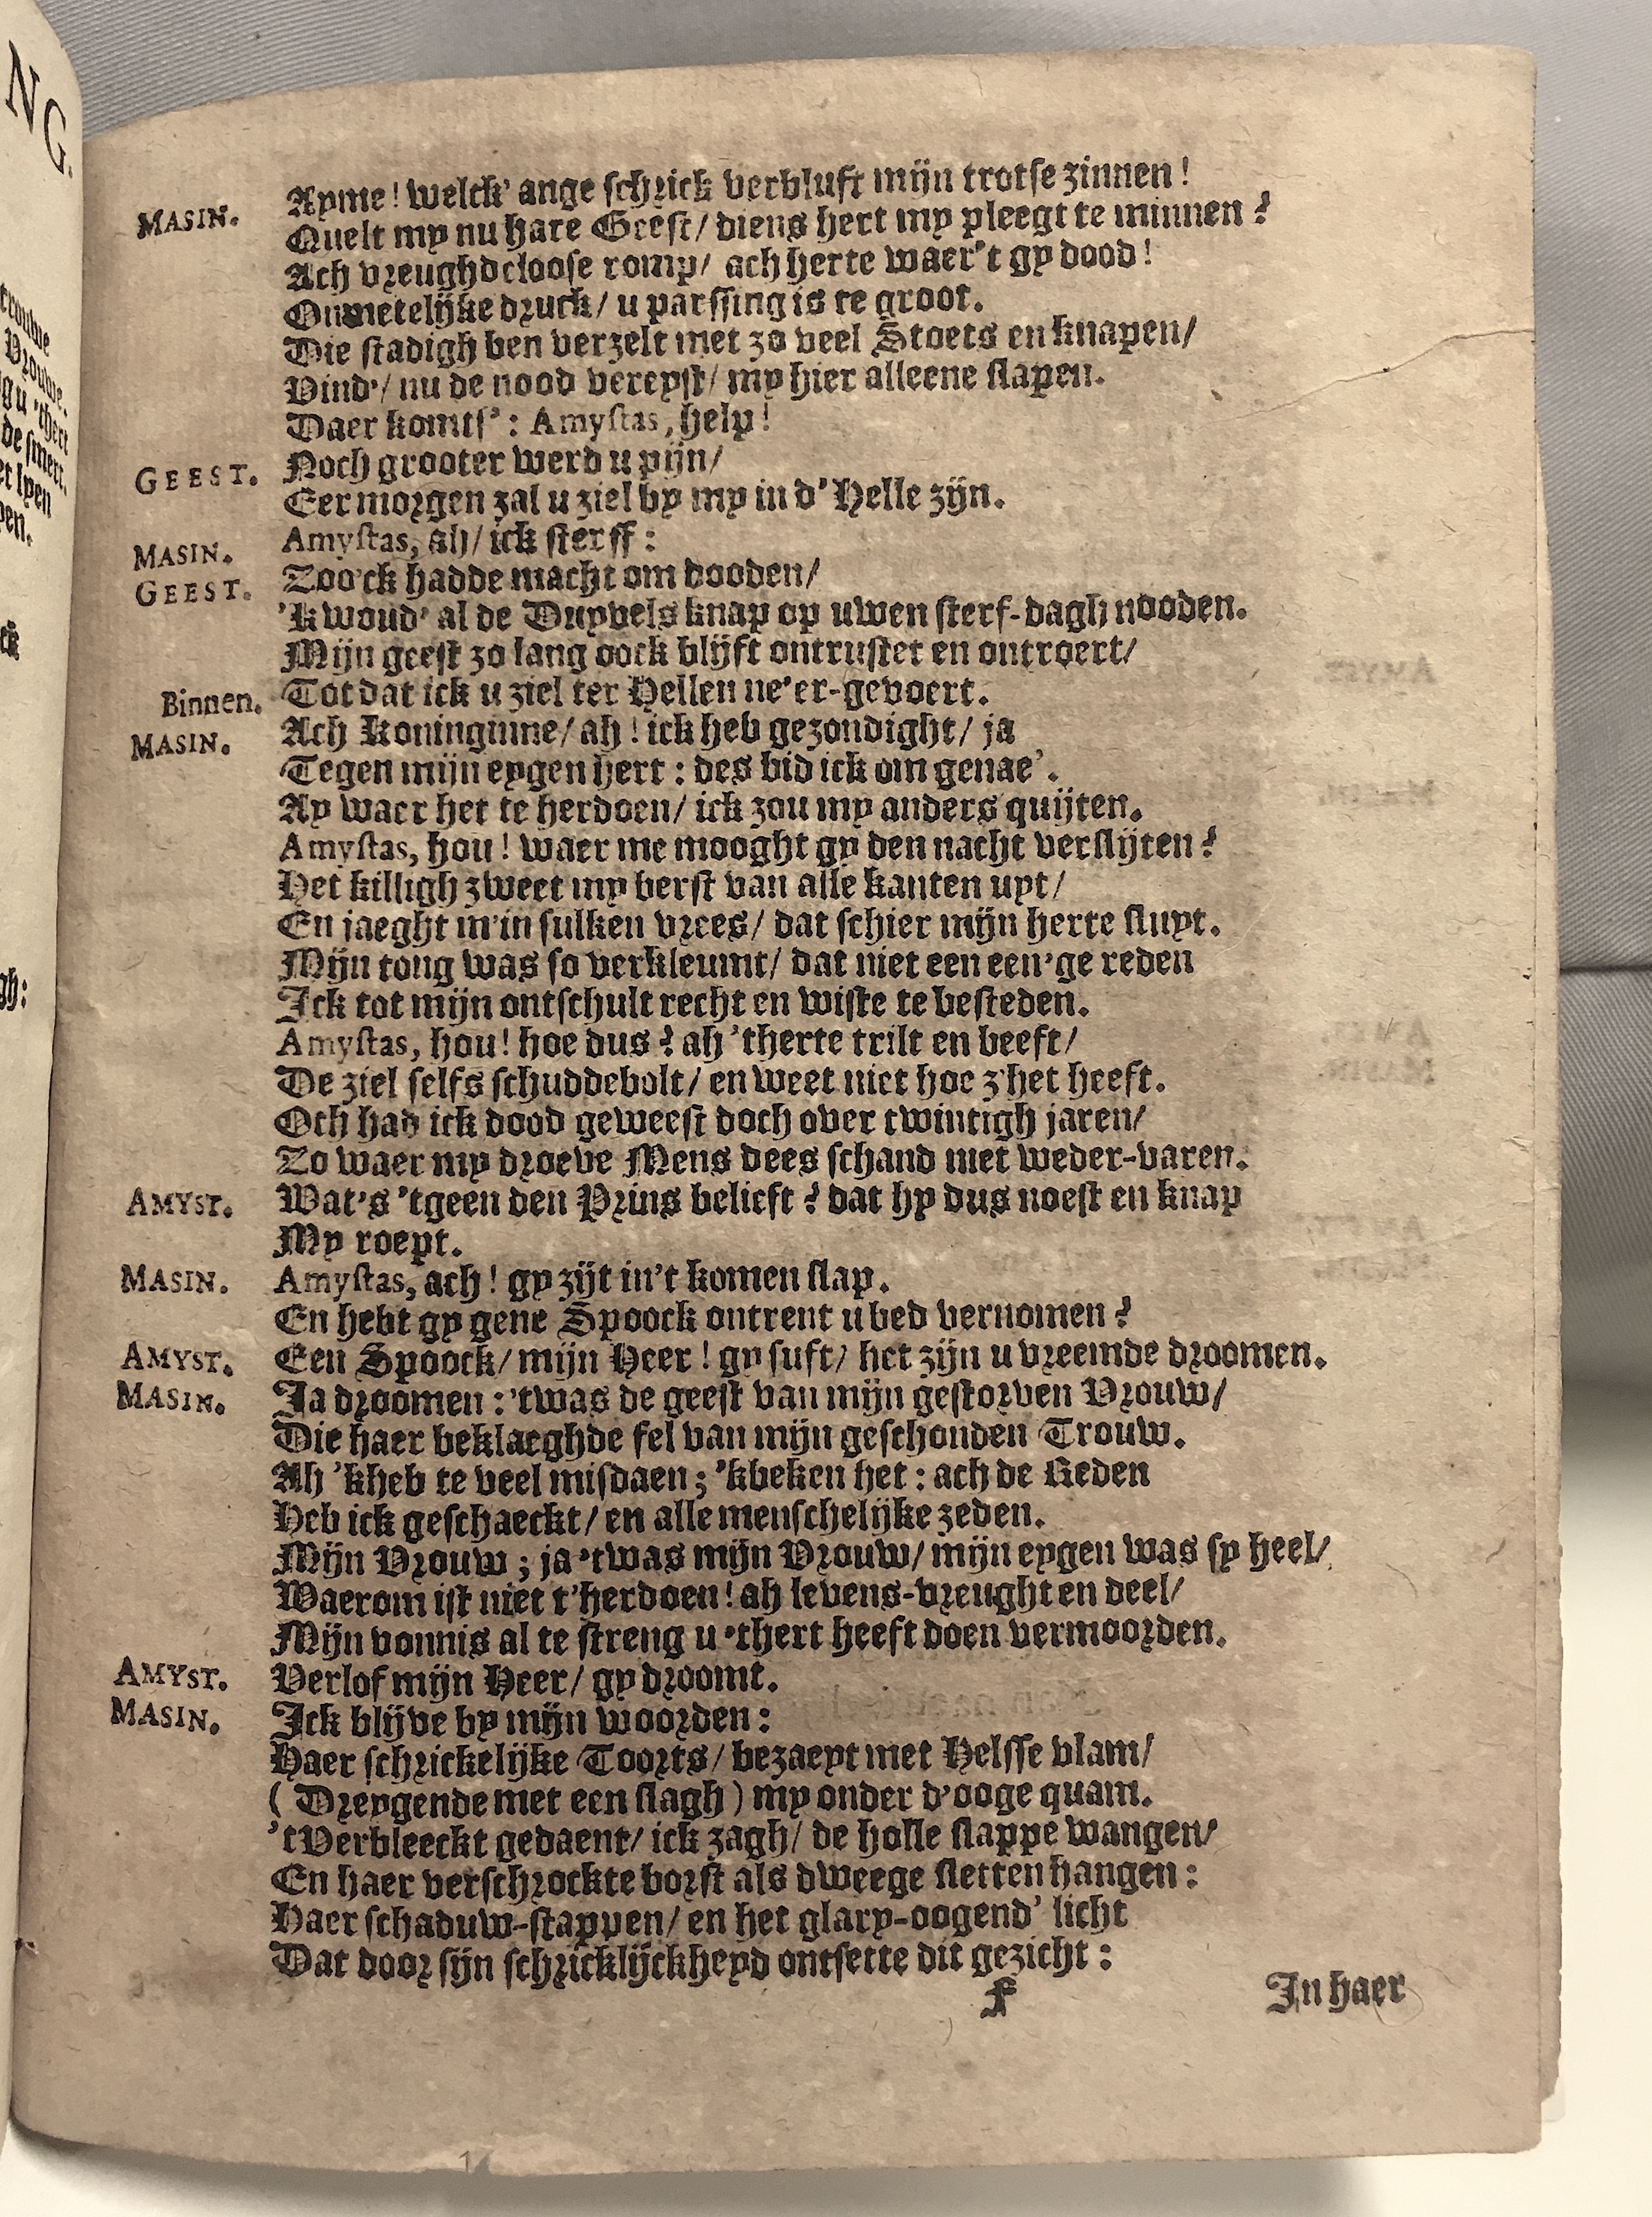 NG.
MASIN. Ayme! welck' ange schrick verbluft mijn trotse zinnen!
Quelt my nu hare Geest/ diens hert my pleegt te minnen?
Ach vreughdeloose romp/ ach herte waer't gy dood!
Onmetelijke druck/ u parssing is te groot.
Die stadigh ben verzelt met zo veel Stoets en knapen/
Vind'/ nu de nood vereyst/ my hier alleene slapen.
Daer komts': Amystas, help!
GEEST. Noch grooter werd u pijn/
Eer morgen zal u ziel by my in d'Helle zijn.
MASIN. Amystas, ah/ ick sterff:
GEEST. Zoo'ck hadde macht om dooden/
'k woud' al de Duyvels knap op uwen sterf-dagh nooden.
Mijn geest zo lang oock blijft ontrustet en ontroert/
Binnen. Tot dat ick u ziel ter Hellen ne'er-gevoert.
MASIN. Ach Koninginne/ ah! ick heb gezondight/ ja
Tegen mijn eygen hert: des bid ick om genae'.
Ay waer het te herdoen/ ick zou my anders quijten.
Amystas, hou! waer me mooght gy den nacht verslijten?
Het killigh zweet my berst van alle kanten uyt/
En jaeght m'in sulken vrees/ dat schier mijn herte sluyt.
Mijn tong was so verkleumt/ dat niet een een'ge reden
Ick tot mijn ontschult recht en wiste te besteden.
Amystas, hou! hoe dus? ah 'therte trilt en beeft/
De ziel selfs schuddebolt/ en weet niet hoe z'het heeft.
Och had ick dood geweest doch over twintigh jaren/
Zo waer my droeve Mens dees schand niet weder-varen.
AMYST. Wat's 'tgeen den Prins belieft? dat hy dus noest en knap
My roept.
MASIN. Amystas, ach! gy zijt in't komen slap.
En hebt gy gene Spoock ontrent u bed vernomen?
AMYST. Een Spoock/ mijn Heer! gy suft/ het zijn u vreemde droomen.
MASIN. Ja droomen: 'twas de geest van mijn gestorven Vrouw/
Die haer beklaeghde fel van mijn geschonden Trouw.
Ah 'kheb te veel misdaen; 'kbeken het: ach de Reden
Heb ick geschaeckt/ en alle menschelijke zeden.
Mijn Vrouw; ja 'twas mijn Vrouw/ mijn eygen was sy heel/
Waerom ist niet t'herdoen! ah levens-vreught en deel/
Mijn vonnis al te streng u 'thert heeft doen vermoorden.
AMYST. Verlof mijn Heer/ gy droomt.
MASIN. Ick blijve by mijn woorden:
Haer schrickelijke Toorts/ bezaeyt met Helsse vlam/
(Dreygende met een slagh) my onder d'ooge quam.
'tVerbleeckt gedaent/ ick zagh/ de holle slappe wangen/
En haer verschrockte borst als dweege sletten hangen:
Haer schaduw-stappen/ en het glary-oogend' licht
Dat door sijn schricklijckheyd ontsette dit gezicht:
f In haer